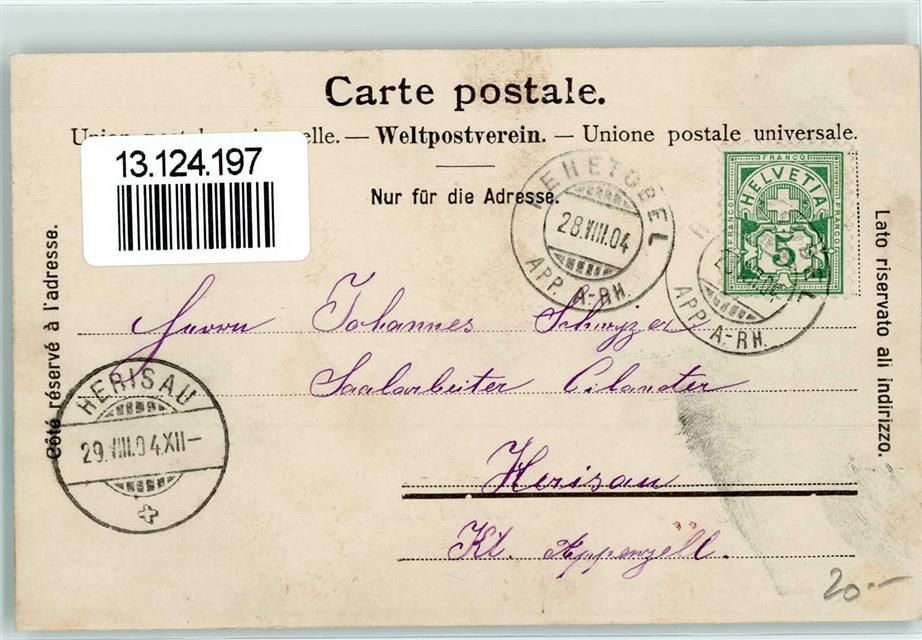 Carte postale.
Union postale universelle. — Weltpostverein. — Unione postale universale.
13.124.197
Nur für die Adresse.
REHETOBEL
28.VIII.04
APP. A-RH.
FRANCO
FRANCO
FRANCO
HELVETIA
5
APP. A-RH.
Côté réservé à l'adresse.
Lato riservato ali indirizzo.
Herrn Johannes Schwyzer
Saalarbeiter Cilander
HERISAU
29.VIII.04.XII—
Herisau
Kt. Appenzell.
20.—